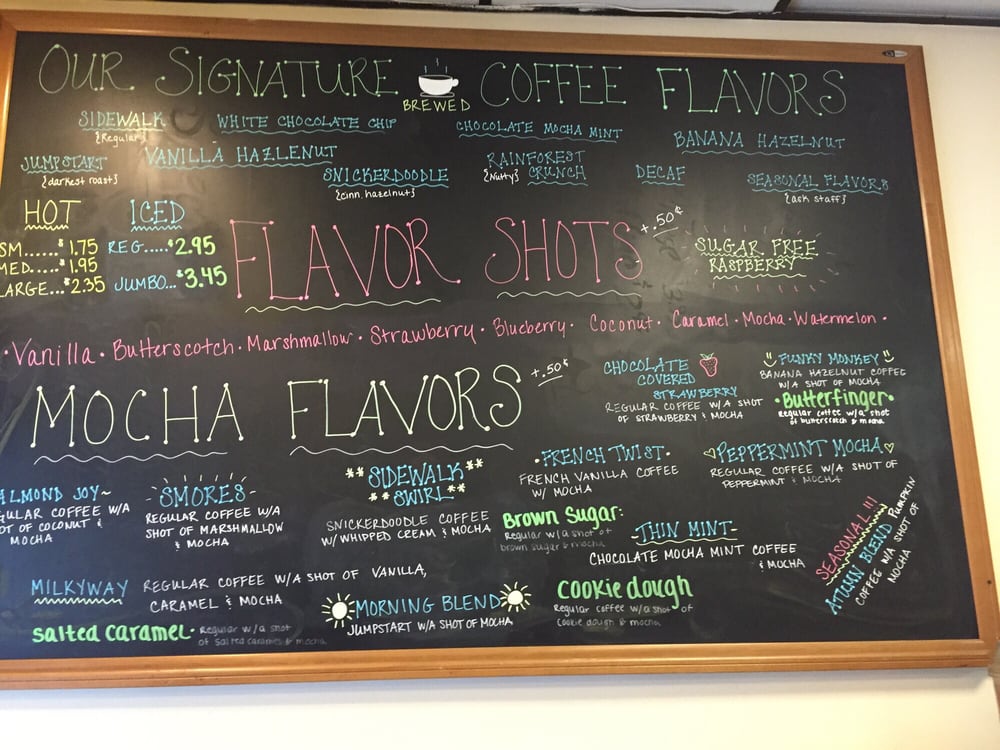 OUR SIGNATURE BREWED COFFEE FLAVORS
SIDEWALK
{Regular}
WHITE CHOCOLATE CHIP
CHOCOLATE MOCHA MINT
BANANA HAZELNUT
JUMPSTART
{darkest roast}
VANILLA HAZLENUT
SNICKERDOODLE
{cinn. hazelnut}
RAINFOREST
{Nutty} CRUNCH
DECAF
SEASONAL FLAVORS
{ask staff}
HOT
SM......$1.75
MED.....$1.95
LARGE...$2.35
ICED
REG.....$2.95
JUMBO...$3.45
FLAVOR SHOTS +.50¢
SUGAR FREE
RASPBERRY
• Vanilla • Butterscotch • Marshmallow • Strawberry • Blueberry • Coconut • Caramel • Mocha • Watermelon •
MOCHA FLAVORS +.50¢
CHOCOLATE
COVERED
STRAWBERRY
REGULAR COFFEE W/A SHOT
OF STRAWBERRY & MOCHA
FUNKY MONKEY
BANANA HAZELNUT COFFEE
W/A SHOT OF MOCHA
•Butterfinger•
Regular coffee w/a shot
of butterscotch & mocha
ALMOND JOY~
GULAR COFFEE W/A
OT OF COCONUT &
MOCHA
-SMORES-
REGULAR COFFEE W/A
SHOT OF MARSHMALLOW
& MOCHA
**SIDEWALK**
**SWIRL**
SNICKERDOODLE COFFEE
W/WHIPPED CREAM & MOCHA
•FRENCH TWIST•
FRENCH VANILLA COFFEE
W/ MOCHA
♡PEPPERMINT MOCHA♡
REGULAR COFFEE W/A SHOT OF
PEPPERMINT & MOCHA
Brown Sugar:
Regular w/a shot of
brown sugar & mocha
-THIN MINT-
CHOCOLATE MOCHA MINT COFFEE
& MOCHA
SEASONAL!!!
AUTUMN BLEND PUMPKIN
COFFEE W/A SHOT OF
MOCHA
MILKYWAY REGULAR COFFEE W/A SHOT OF VANILLA,
CARAMEL & MOCHA
MORNING BLEND
JUMPSTART W/A SHOT OF MOCHA
cookie dough
Regular coffee w/a shot of
cookie dough & mocha
Salted Caramel- Regular w/a shot
of salted caramel & mocha